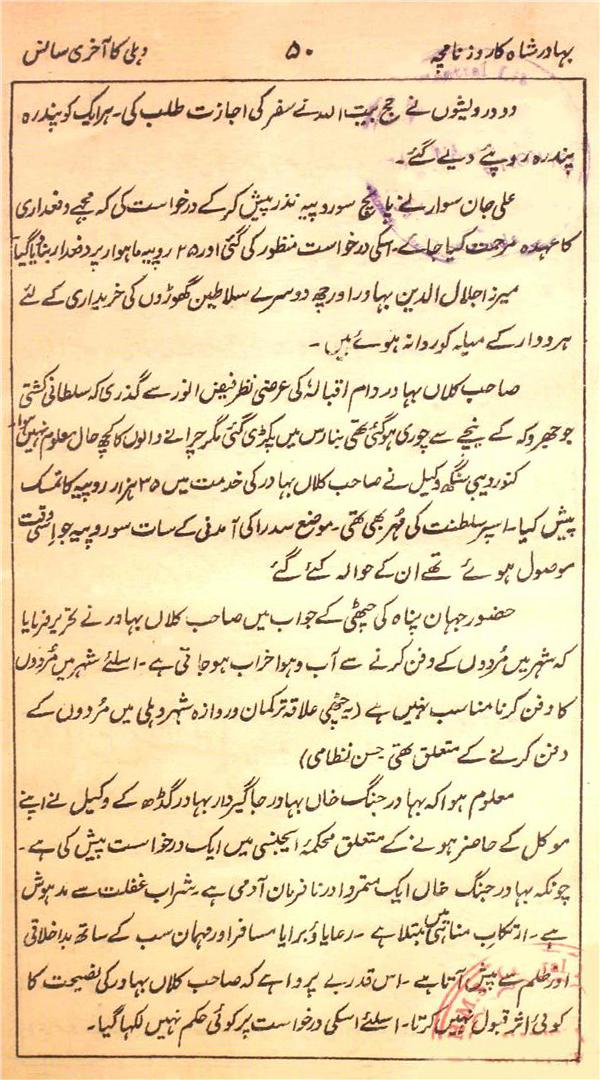 بہادر شاہ کا روزنامچہ ۵۰ دہلی کا آخری سانس
دو درویشوں نے حج بیت اللہ نے سفر کی اجازت طلب کی۔ ہر ایک کو پندرہ
پندرہ روپئے دیے گئے۔
علی جان سوار نے پانچ سو روپیہ نذر پیش کر کے درخواست کی کہ مجھے دفعداری
کا عہدہ مرحمت کیا جائے۔ اسکی درخواست منظور کی گئی اور ۲۵ روپیہ ماہوار پر دفعدار بنایا گیا
میرزا جلال الدین بہادر اور چھ دوسرے سلاطین گھوڑوں کی خریداری کے لئے
ہردوار کے میلہ کو روانہ ہوئے ہیں۔
صاحب کلاں بہادر دام اقبالہٗ کی عرضی نظر فیض انور سے گذری کہ سلطانی کشتی
جو جھروکہ کے نیچے سے چوری ہو گئی تھی بنارس میں پکڑی گئی مگر چرانے والوں کا کچھ حال معلوم نہیں ہوا۔
کنور دیبی سنگھ وکیل نے صاحب کلاں بہادر کی خدمت میں ۳۵ ہزار روپیہ کا تمسک
پیش کیا۔ اسپر سلطنت کی مُہر بھی تھی۔ موضع سدرا کی آمدنی کے سات سو روپیہ جو اسی وقت
موصول ہوئے تھے ان کے حوالہ کئے گئے
حضور جہان پناہ کی چٹھی کے جواب میں صاحب کلاں بہادر نے تحریر فرمایا
کہ شہر میں مُردوں کے دفن کرنے سے آب و ہوا خراب ہو جاتی ہے۔ اسلئے شہر میں مُردوں
کا دفن کرنا مناسب نہیں ہے (یہ چٹھی علاقہ ترکمان دروازہ شہر دہلی میں مُردوں کے
دفن کرنے کے متعلق تھی حسن نظامی)
معلوم ہوا کہ بہادر جنگ خاں بہادر جاگیردار بہادر گڈھ کے وکیل نے اپنے
موکل کے حاضر ہونے کے متعلق محکمۂ ایجنسی میں ایک درخواست پیش کی ہے۔
چونکہ بہادر جنگ خاں ایک متمرد اور نافرمان آدمی ہے۔ شراب غفلت سے مدہوش
ہے۔ ارتکاب مناہی میں مبتلا ہے۔ رعایا و برایا مسافر اور مہمان سب کے ساتھ بداخلاقی
اور ظلم سے پیش آتا ہے۔ اس قدر بے پروا ہے کہ صاحب کلاں بہادر کی نصیحت کا
کوئی اثر قبول نہیں کرتا۔ اسلئے اسکی درخواست پر کوئی حکم نہیں لکھا گیا۔